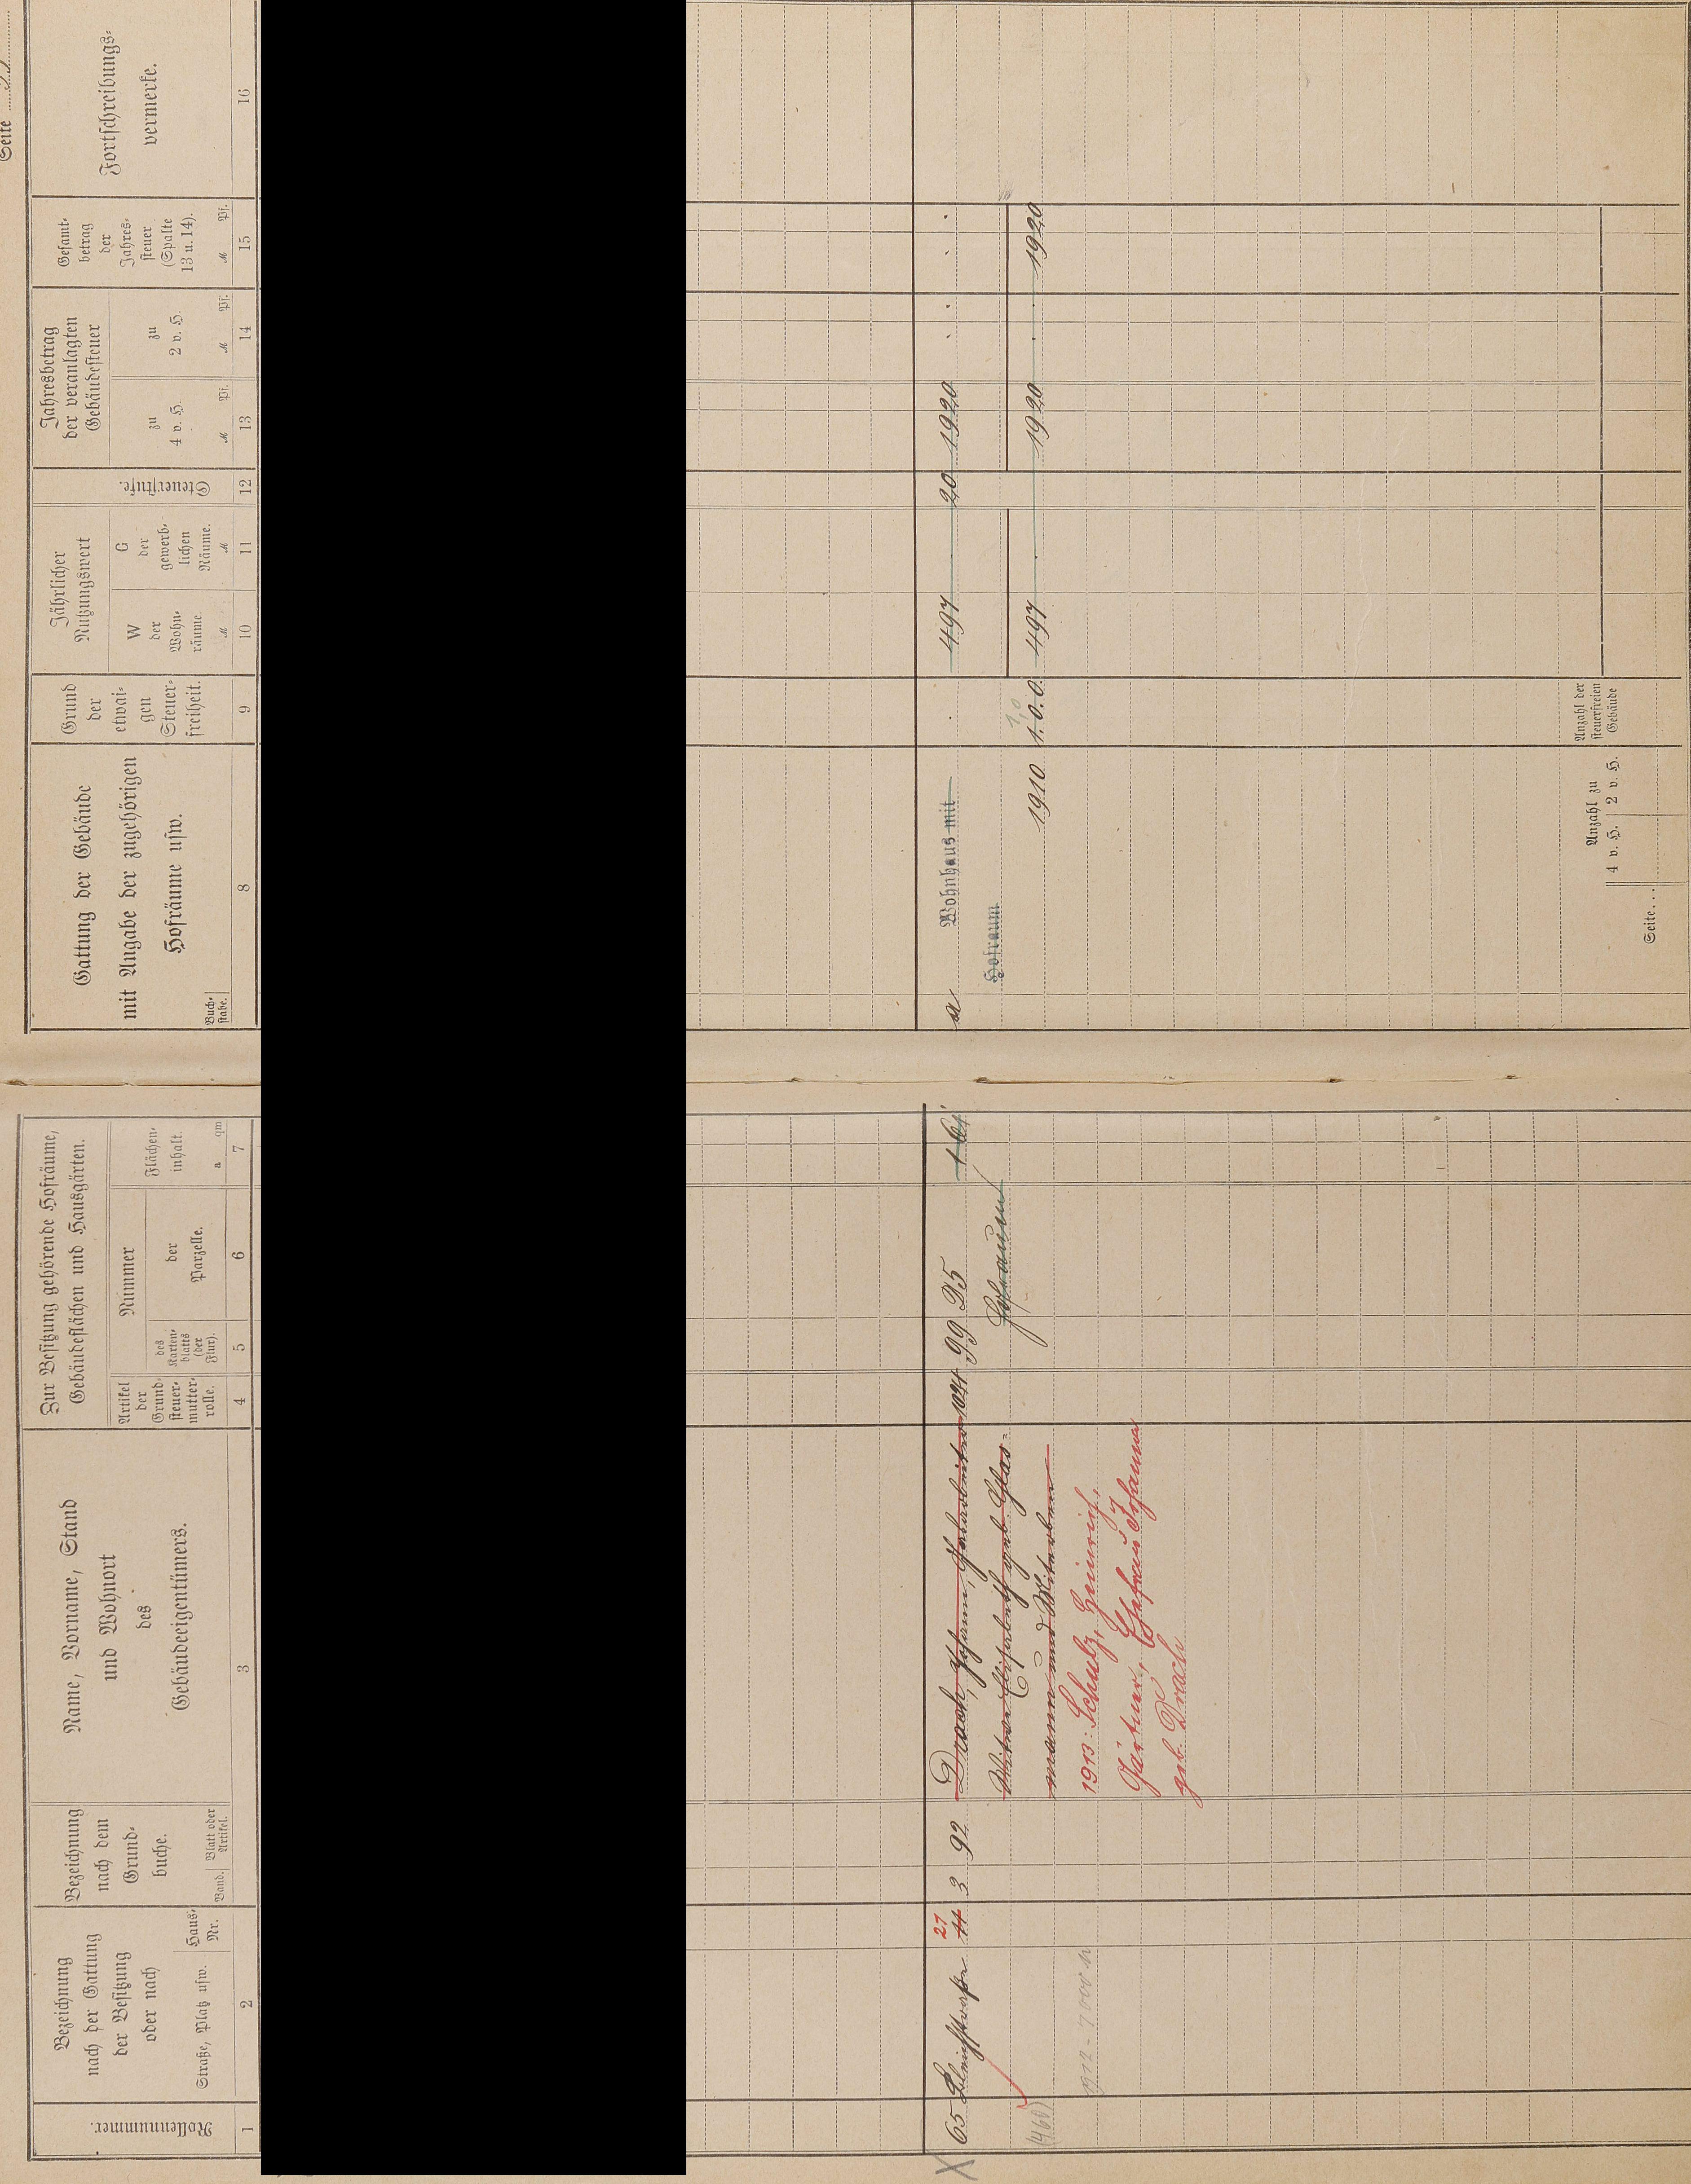 Seite
Rollennummer.
1
Bezeichnung
nach der Gattung
der Besitzung
oder nach
Straße, Platz usw.
Haus-
Nr.
2
Bezeichnung
nach dem
Grund-
buche.
Band.
Blatt oder
Artikel.
Name, Vorname, Stand
und Wohnort
des
Gebäudeeigentümers.
3
Zur Besitzung gehörende Hofräume,
Gebäudeflächen und Hausgärten.
Artikel
der
Grund-
steuer-
mutter-
rolle.
4
Nummer
des
Karten-
blatts
(der
Flur).
5
der
Parzelle.
6
Flächen-
inhalt.
a qm
7
Gattung der Gebäude
mit Angabe der zugehörigen
Hofräume usw.
Buch-
stabe.
8
Grund
der
etwai-
gen
Steuer-
freiheit.
9
Jährlicher
Nutzungswert
W
der
Wohn-
räume.
M
10
G
der
gewerb-
lichen
Räume.
M
11
Steuerstufe.
12
Jahresbetrag
der veranlagten
Gebäudesteuer
zu
4 v. H.
M Pf.
13
zu
2 v. H.
M Pf.
14
Gesamt-
betrag
der
Jahres-
steuer
(Spalte
13 u. 14).
M Pf.
15
Fortschreibungs-
vermerke.
16
27
65 Bleichstraße 11 3 92 Drach, Johann, 1094 99 95 1 61
Witwe Elisabeth geb. Glas-
mann und Miterben
Hofraum
(460)
1912 - 7000 M
1913: Schulz, Heinrich,
Gärtner, Ehefrau Johanna
geb. Drach
a Wohnhaus mit 497 20 19 20
Hofraum
1910 1. 0. 0. 497 19 20 19 20
Seite
Anzahl zu
4 v. H. 2 v. H.
Anzahl der
steuerfreien
Gebäude